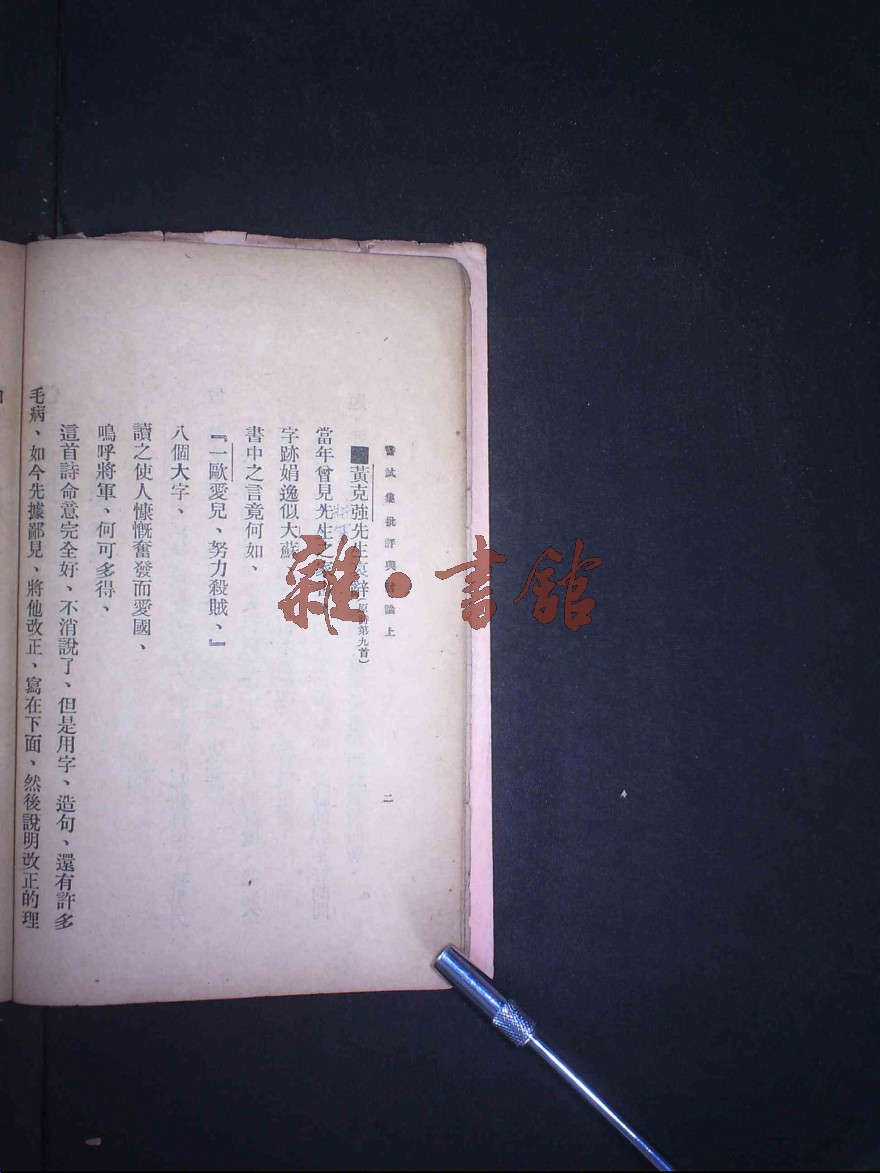 嘗試集批評與討論上 二
黃克強先生哀辭（原詩第九首）
當年曾見先生之家
字跡娟逸似大蘇
書中之言竟何如、
『一歐愛兒、努力殺賊、』
八個大字、
讀之使人慷慨奮發而愛國、
嗚呼將軍、何可多得、
這首詩命意完全好、不消說了、但是用字、造句、還有許多
毛病、如今先據鄙見、將他改正、寫在下面、然後說明改正的理
雜·書館